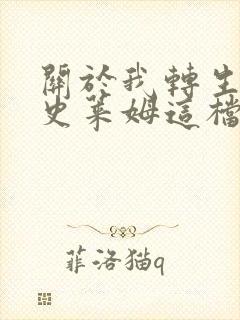 關於我轉生
史萊姆這檔
菲洛猫q